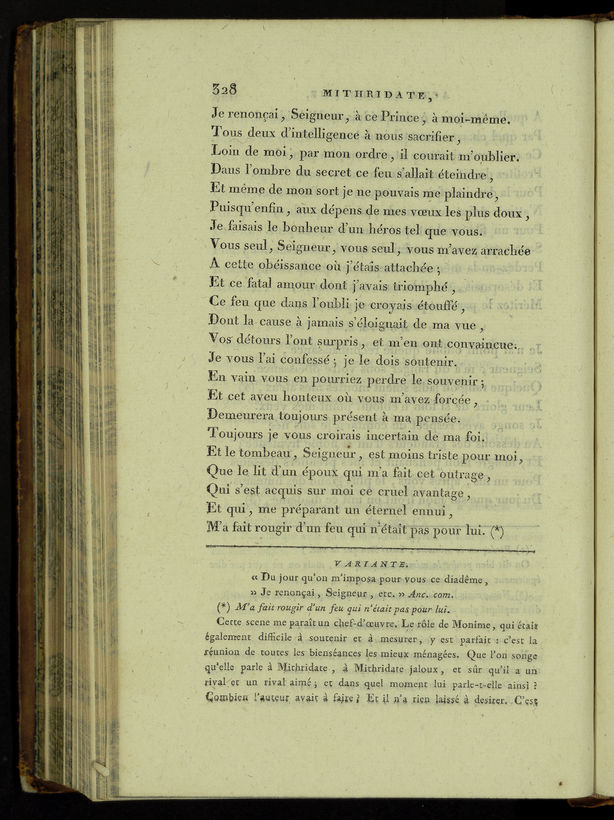 328
MITHRIDATE,
Je renonçai, Seigneur, à ce Prince, à moi-même.
Tous deux d'intelligence à nous sacrifier,
Loin de moi, par mon ordre, il courait m'oublier.
Dans l'ombre du secret ce feu s'allait éteindre,
Et même de mon sort je ne pouvais me plaindre,
Puisqu'enfin, aux dépens de mes vœux les plus doux,
Je faisais le bonheur d'un héros tel que vous.
Vous seul, Seigneur, vous seul, vous m'avez arrachée
A cette obéissance où j'étais attachée;
Et ce fatal amour dont j'avais triomphé,
Ce feu que dans l'oubli je croyais étouffé,
Dont la cause à jamais s'éloignait de ma vue,
Vos détours l'ont surpris, et m'en ont convaincue.
Je vous l'ai confessé; je le dois soutenir.
En vain vous en pourriez perdre le souvenir;
Et cet aveu honteux où vous m'avez forcée,
Demeurera toujours présent à ma pensée.
Toujours je vous croirais incertain de ma foi.
Et le tombeau, Seigneur, est moins triste pour moi,
Que le lit d'un époux qui m'a fait cet outrage,
Qui s'est acquis sur moi ce cruel avantage,
Et qui, me préparant un éternel ennui,
M'a fait rougir d'un feu qui n'était pas pour lui. (*)
VARIANTE.
« Du jour qu'on m'imposa pour vous ce diadême,
» Je renonçai, Seigneur, etc. » Anc. com.
(*) M'a fait rougir d'un feu qui n'était pas pour lui.
Cette scene me paraît un chef-d'œuvre. Le rôle de Monime, qui était
également difficile à soutenir et à mesurer, y est parfait : c'est la
réunion de toutes les bienséances les mieux ménagées. Que l'on songe
qu'elle parle à Mithridate, à Mithridate jaloux, et sûr qu'il a un
rival et un rival aimé; et dans quel moment lui parle-t-elle ainsi ?
Combien l'auteur avait à faire ! Et il n'a rien laissé à desirer. C'est